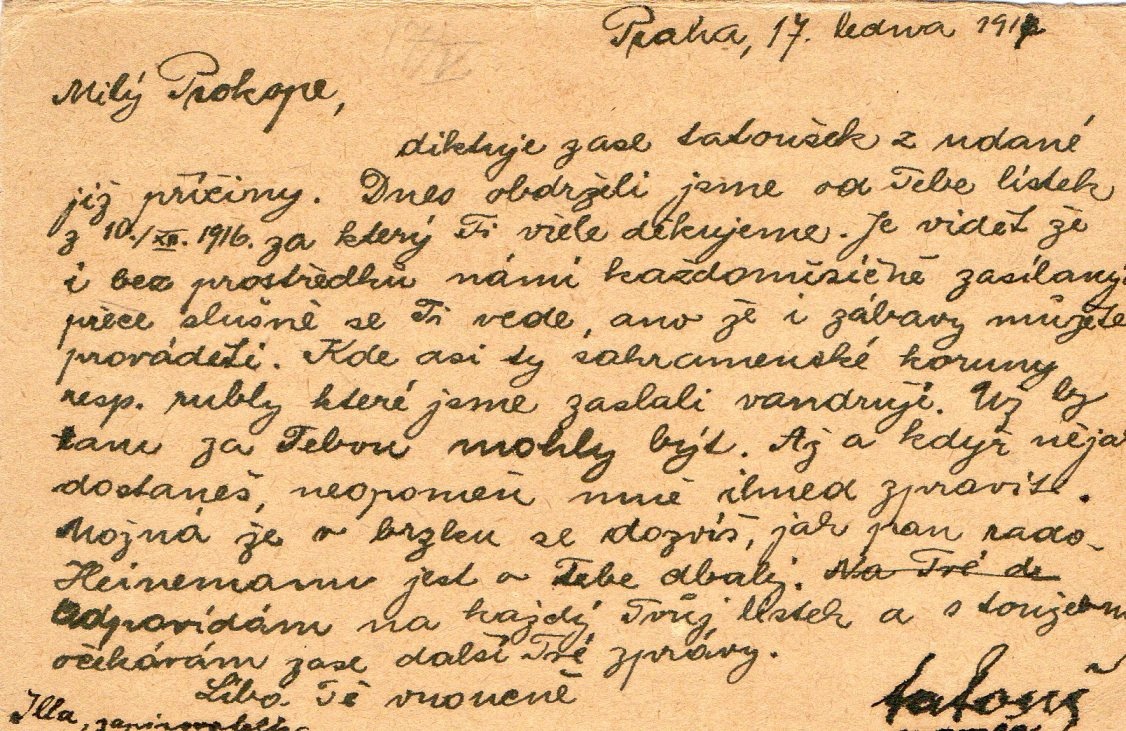 Praha, 17. ledna 1917
Milý Prokope,
diktuje zase tatoušek z udané
již příčiny. Dnes obdrželi jsme od Tebe lístek
z 10./XII. 1916. za který Ti vřele děkujeme. Je vidět že
i bez prostředků námi každoměsíčně zasílaný
přece slušně se Ti vede, ano že i zábavy můžete
prováděti. Kde asi ty sakramenské koruny
resp. rubly které jsme zaslali vandrují. Už by
tam za Tebou mohly být. Až a když něja
dostaneš, neopomeň mně ihned zpravit.
Možná že v brzku se dozvíš, jak pan rado-
Heinemann jest o Tebe dbalý. Na Tvé do
Odpovídám na každý Tvůj lístek a s toužebn
očekávám zase další Tvé zprávy.
Líbá Tě vroucně
tatouš
Illa, zapisovatelka